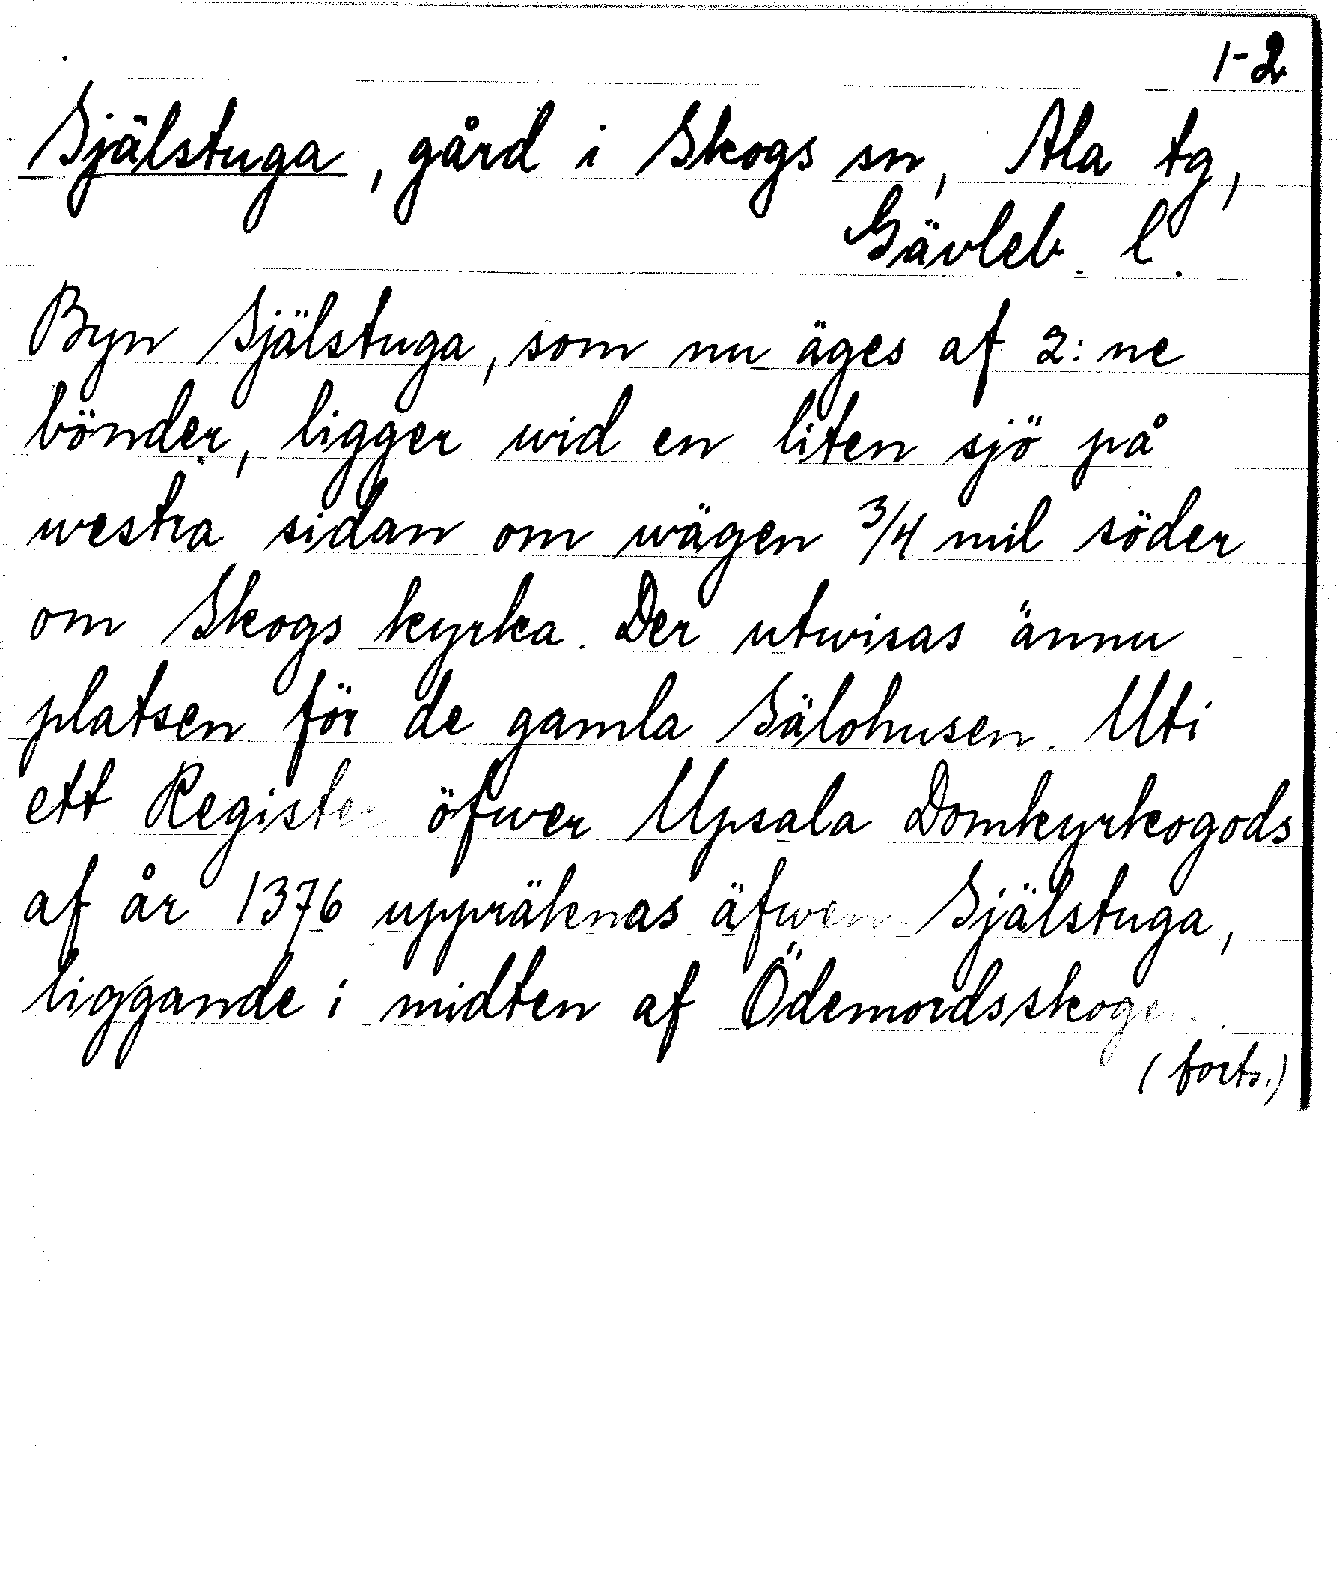 1-2
Själstuga, gård i Skogs sn, Ala tg,
Gävleb. l.
Byn Själstuga, som nu äges af 2:ne
bönder, ligger wid en liten sjö på
westra sidan om wägen 3/4 mil söder
om Skogs kyrka. Der utwisas ännu
platsen för de gamla Sälohusen. Uti
ett Register öfwer Upsala Domkyrkogods
af år 1376 uppräknas äfwen Själstuga,
liggande i midten af Ödemordsskogen.
(forts.)